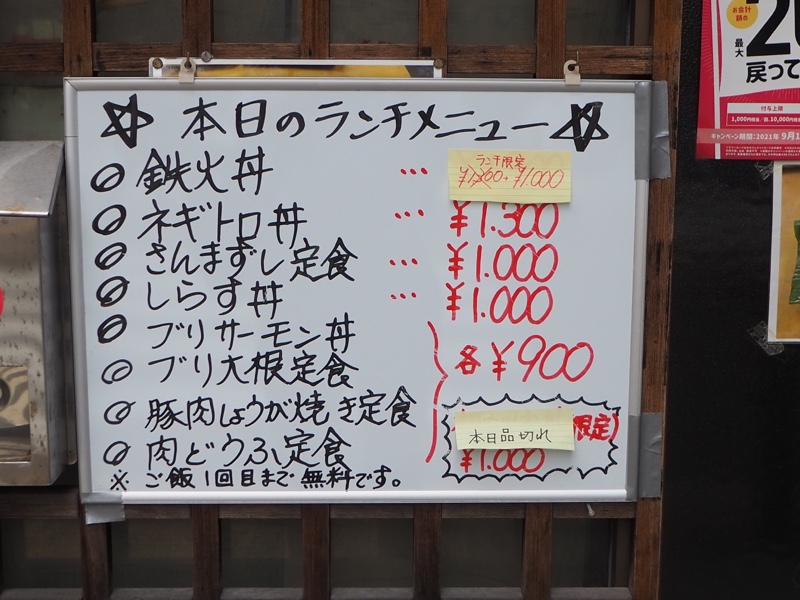 ☆ 本日のランチメニュー ☆
◎ 鉄火丼 …
ランチ限定
¥1,300→¥1,000
◎ ネギトロ丼 … ¥1.300
◎ さんまずし定食 … ¥1.000
◎ しらす丼 … ¥1.000
◎ ブリサーモン丼
◎ ブリ大根定食
各¥900
◎ 豚肉しょうが焼き定食
◎ 肉どうふ定食
限定)
本日品切れ
¥1.000
※ ご飯1回目まで無料です。
お会計額の
最大
20
戻って
付与上限
1,000円相当/回、10,000円相当
キャンペーン期間:2021年9月1